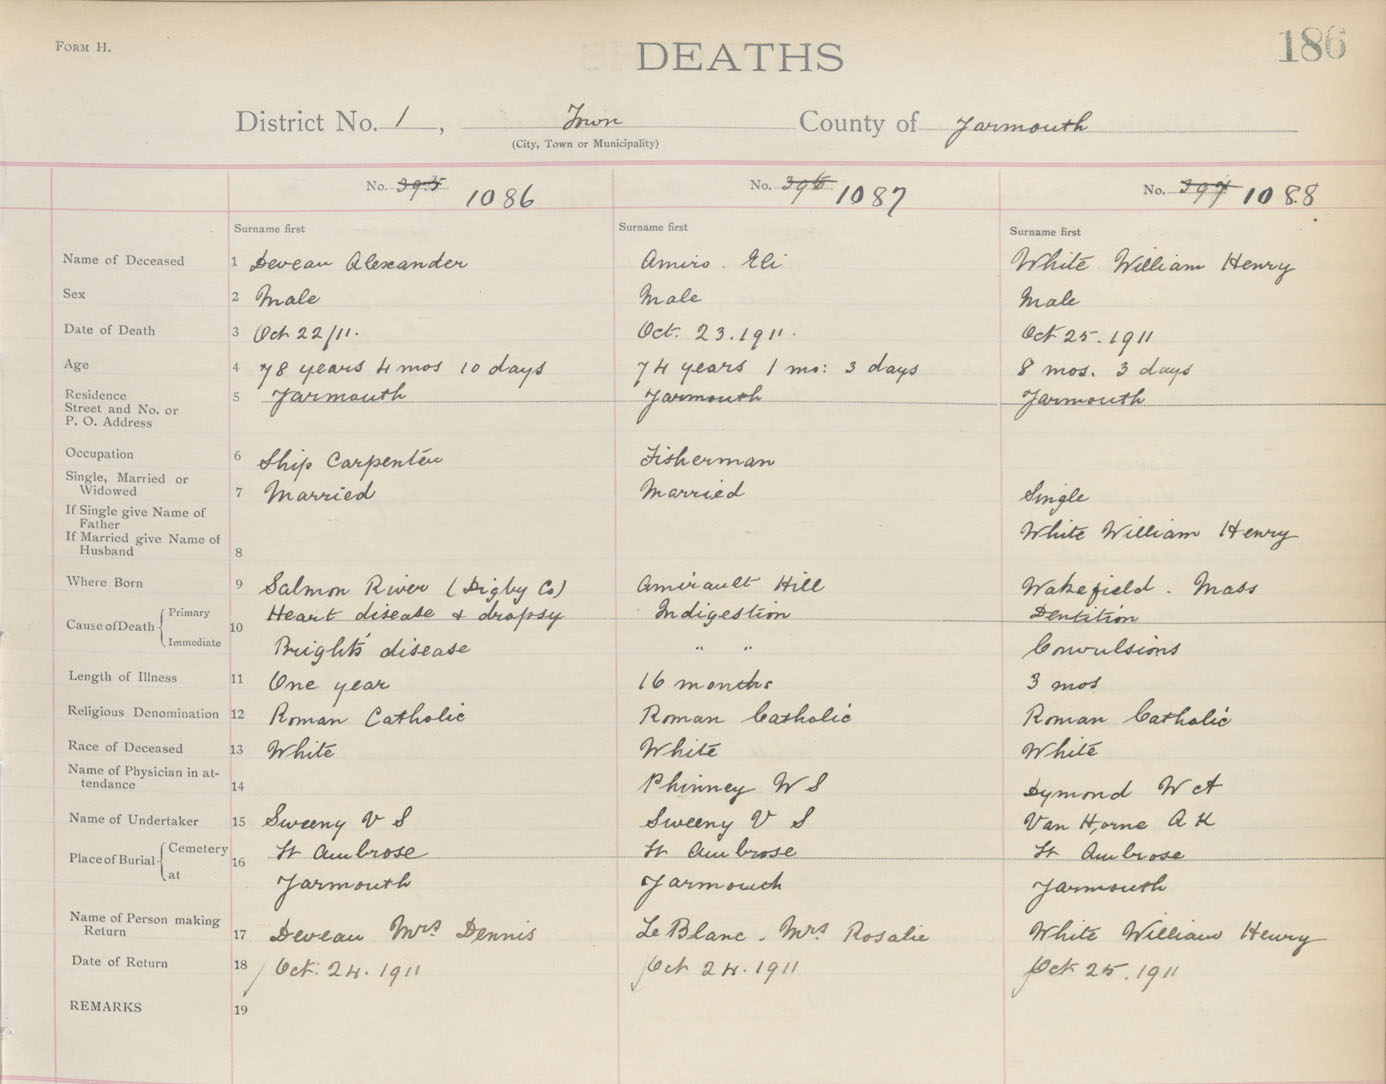 FORM H.
DEATHS
186
District No. 1, Town County of Yarmouth
(City, Town or Municipality)
No. 395 1086 No. 396 1087 No. 397 1088
Surname first Surname first Surname first
Name of Deceased 1 Deveau Alexander Amiro. Eli White William Henry
Sex 2 Male Male Male
Date of Death 3 Oct 22/11. Oct. 23.1911. Oct 25.1911
Age 4 78 years 4 mos 10 days 74 years 1 mo: 3 days 8 mos. 3 days
Residence
Street and No. or
P. O. Address 5 Yarmouth Yarmouth Yarmouth
Occupation 6 Ship Carpenter Fisherman
Single, Married or
Widowed 7 Married Married Single
If Single give Name of
Father White William Henry
If Married give Name of
Husband 8
Where Born 9 Salmon River (Digby Co) Amirault Hill Wakefield. Mass
Cause of Death 10 Primary Heart disease & dropsy Indigestion Dentition
Immediate Bright's disease " " Convulsions
Length of Illness 11 One year 16 months 3 mos
Religious Denomination 12 Roman Catholic Roman Catholic Roman Catholic
Race of Deceased 13 White White White
Name of Physician in at-
tendance 14 Phinney W S Dymond W A
Name of Undertaker 15 Sweeny V S Sweeny V S Van Horne A K
Place of Burial 16 Cemetery St Ambrose St Ambrose St Ambrose
at Yarmouth Yarmouth Yarmouth
Name of Person making
Return 17 Deveau Mrs Dennis Le Blanc. Mrs Rosalie White William Henry
Date of Return 18 Oct. 24. 1911 Oct 24. 1911 Oct 25. 1911
REMARKS 19